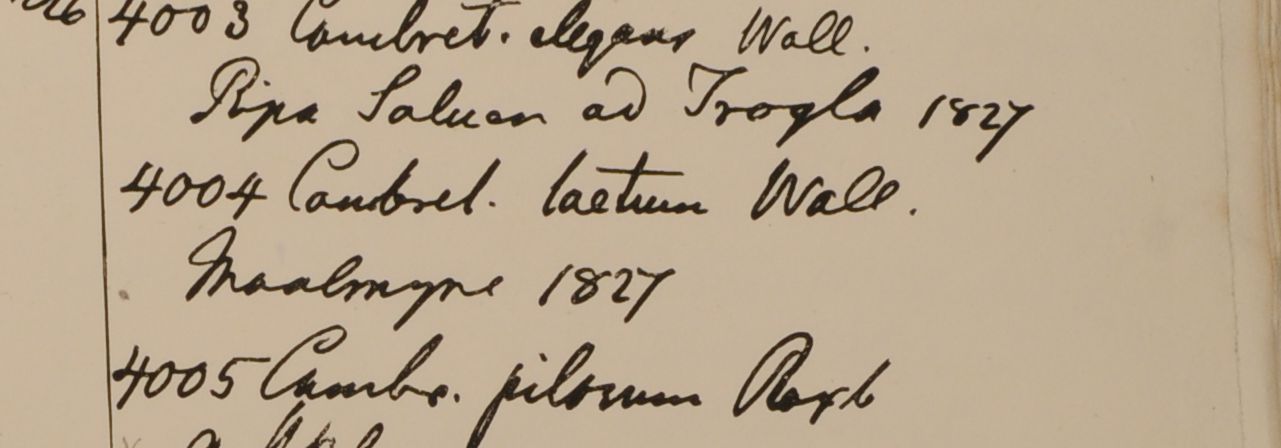 4003 Combret. elegans Wall.
Ripa Saluen ad Trogla 1827
4004 Combret. laetum Wall.
Maalmyne 1827
4005 Combr. pilosum Roxb